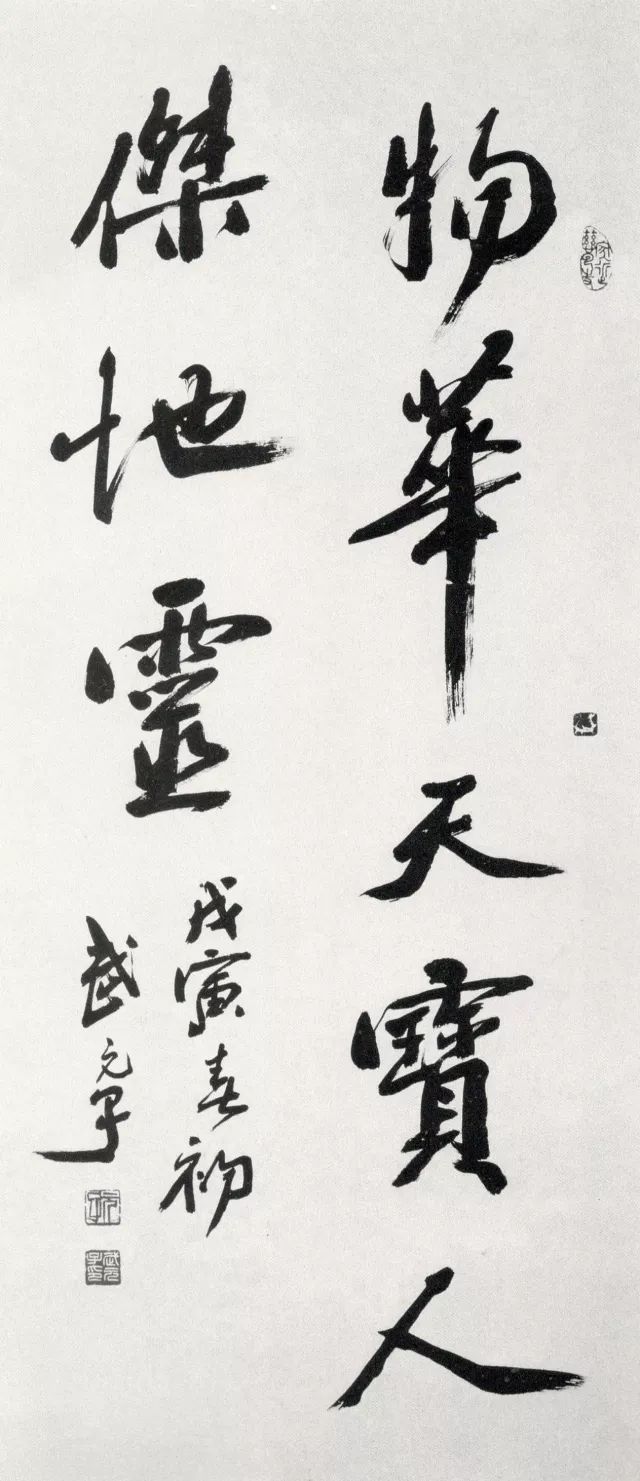 物華天寶人
傑地靈
戊寅春初
武元子